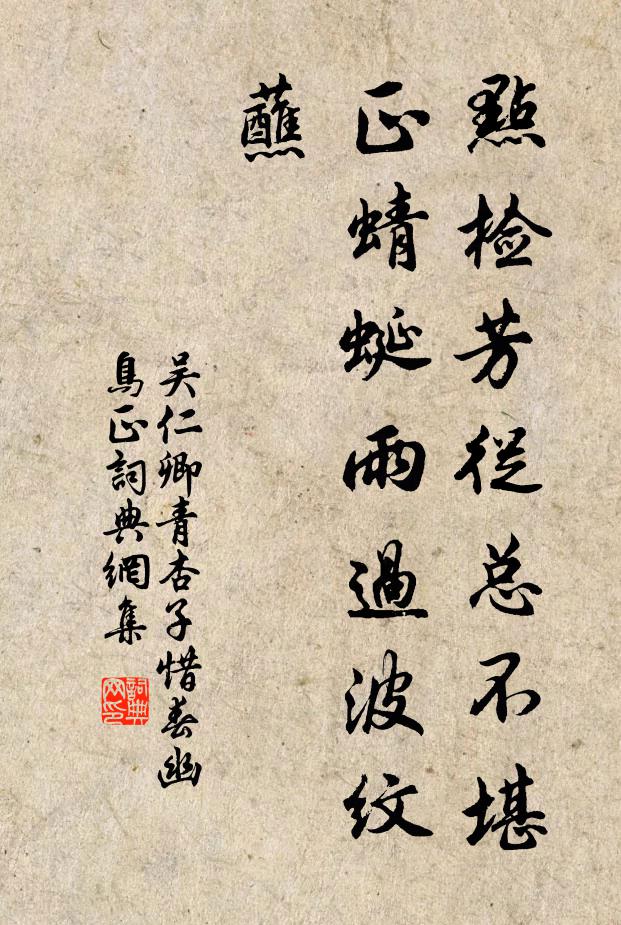 點檢芳從总不堪
正蜻蜓雨過波紋
蘸
吴仁卿青杏子惜春幽
鳥正詞典網集
詞典
网印